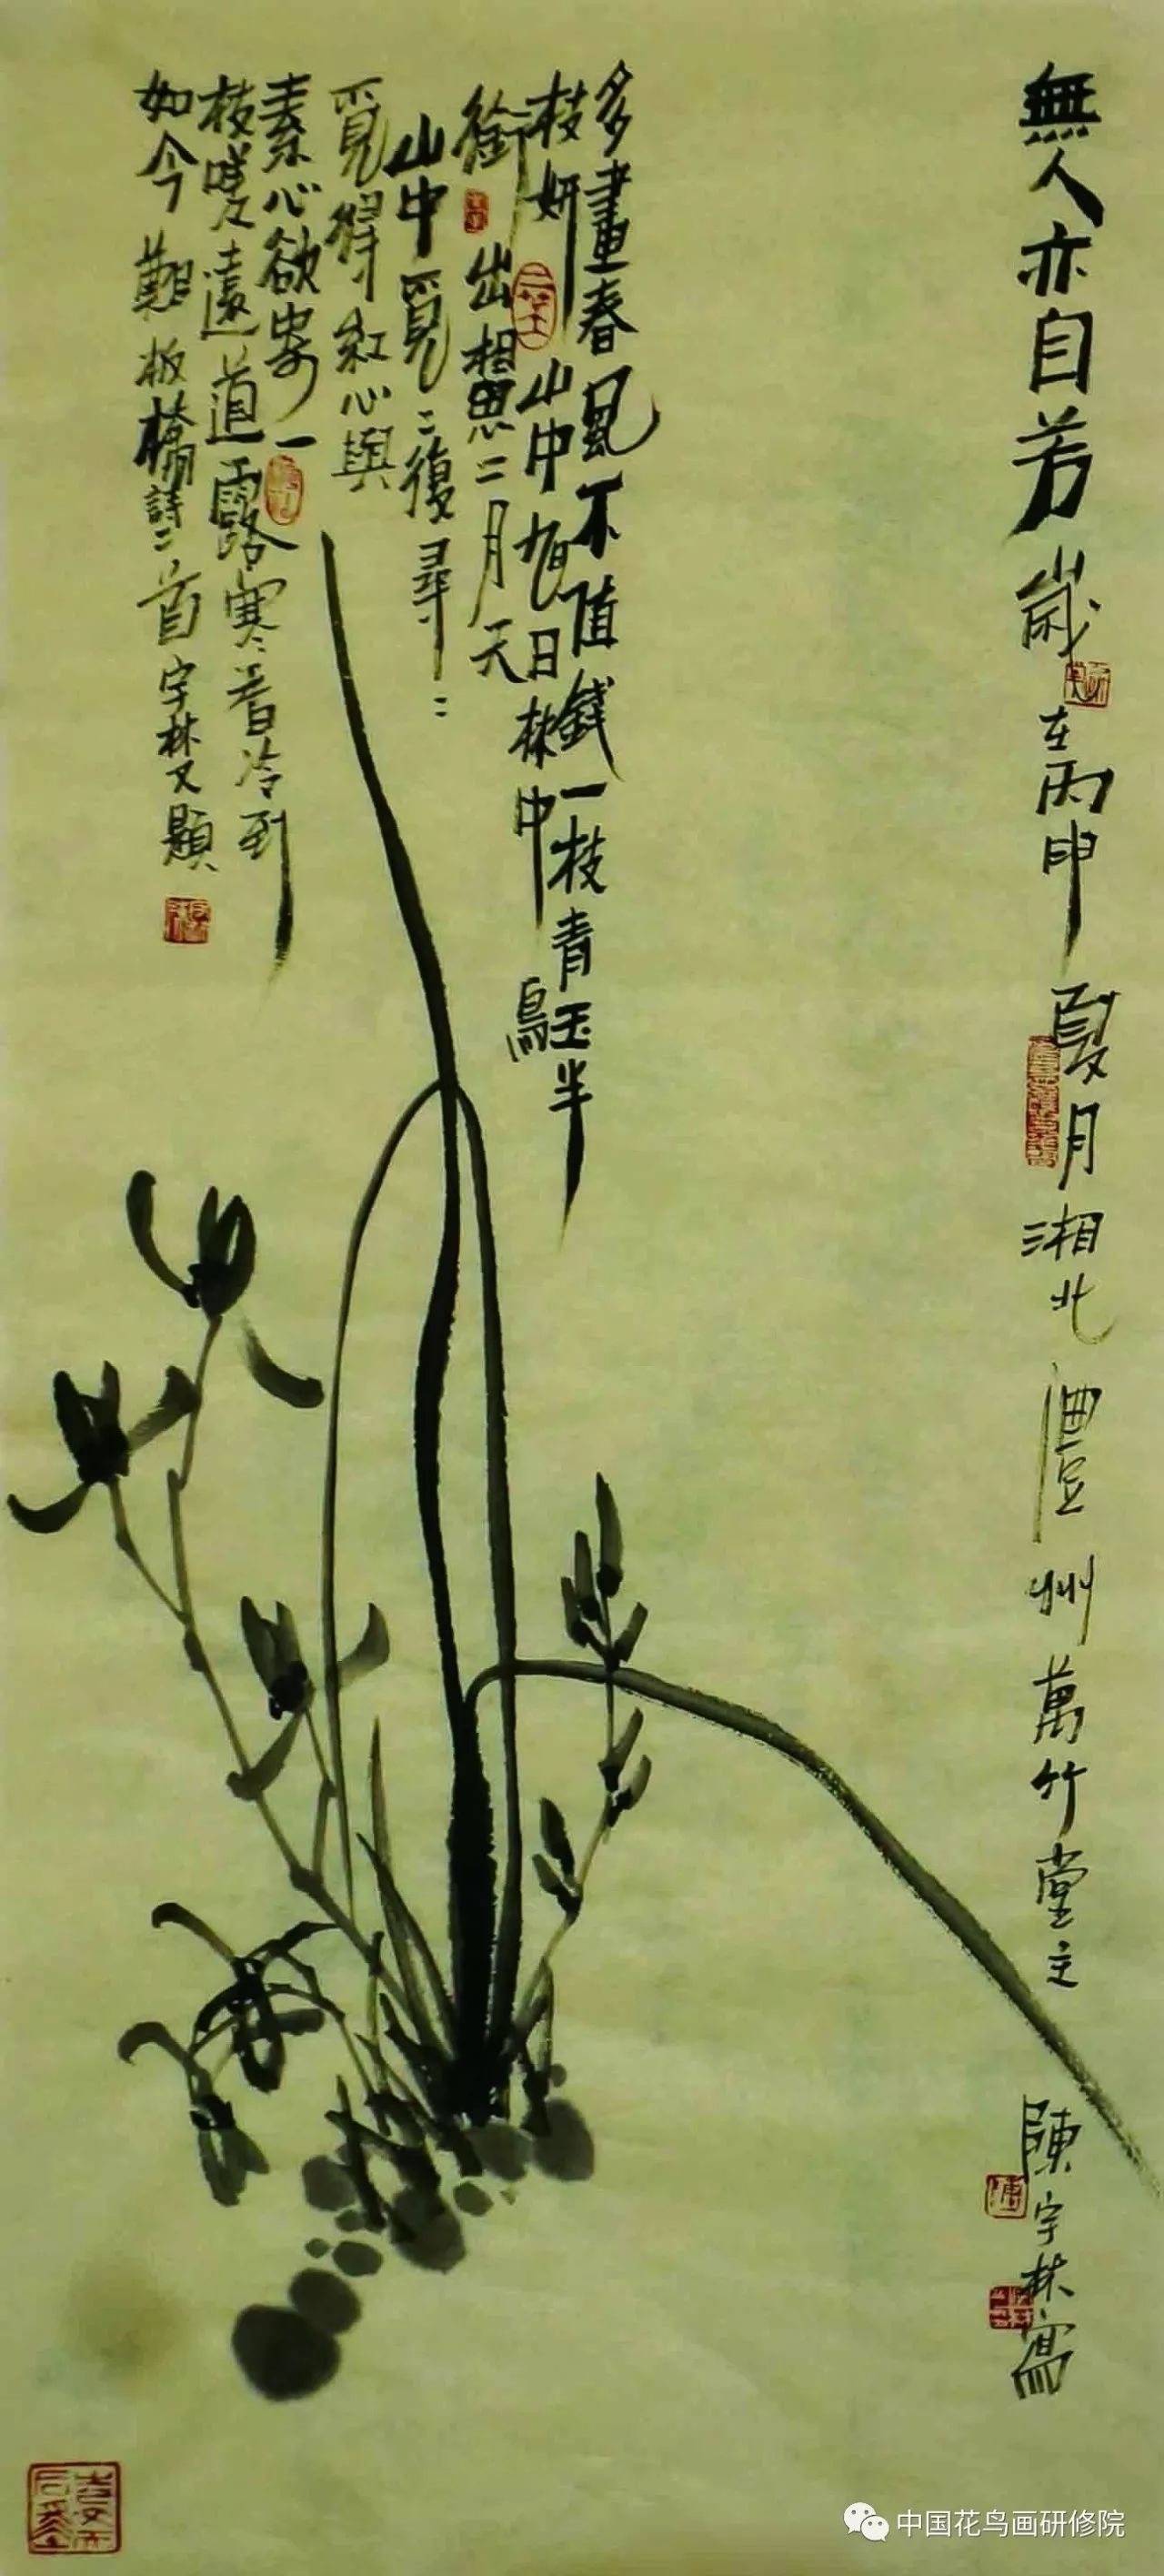 無人亦自芳歲在丙申夏月湘北澧州萬竹堂主陳宇林寫
多畫春風不值錢一枝青玉半
枝妍山中旭日林中鳥
銜出相思二月天
山中覓〻復尋〻
覓得紅心與
素心欲寄一
枝嗟遠道露寒香冷到
如今鄭板橋詩二首宇林又題
中国花鸟画研修院